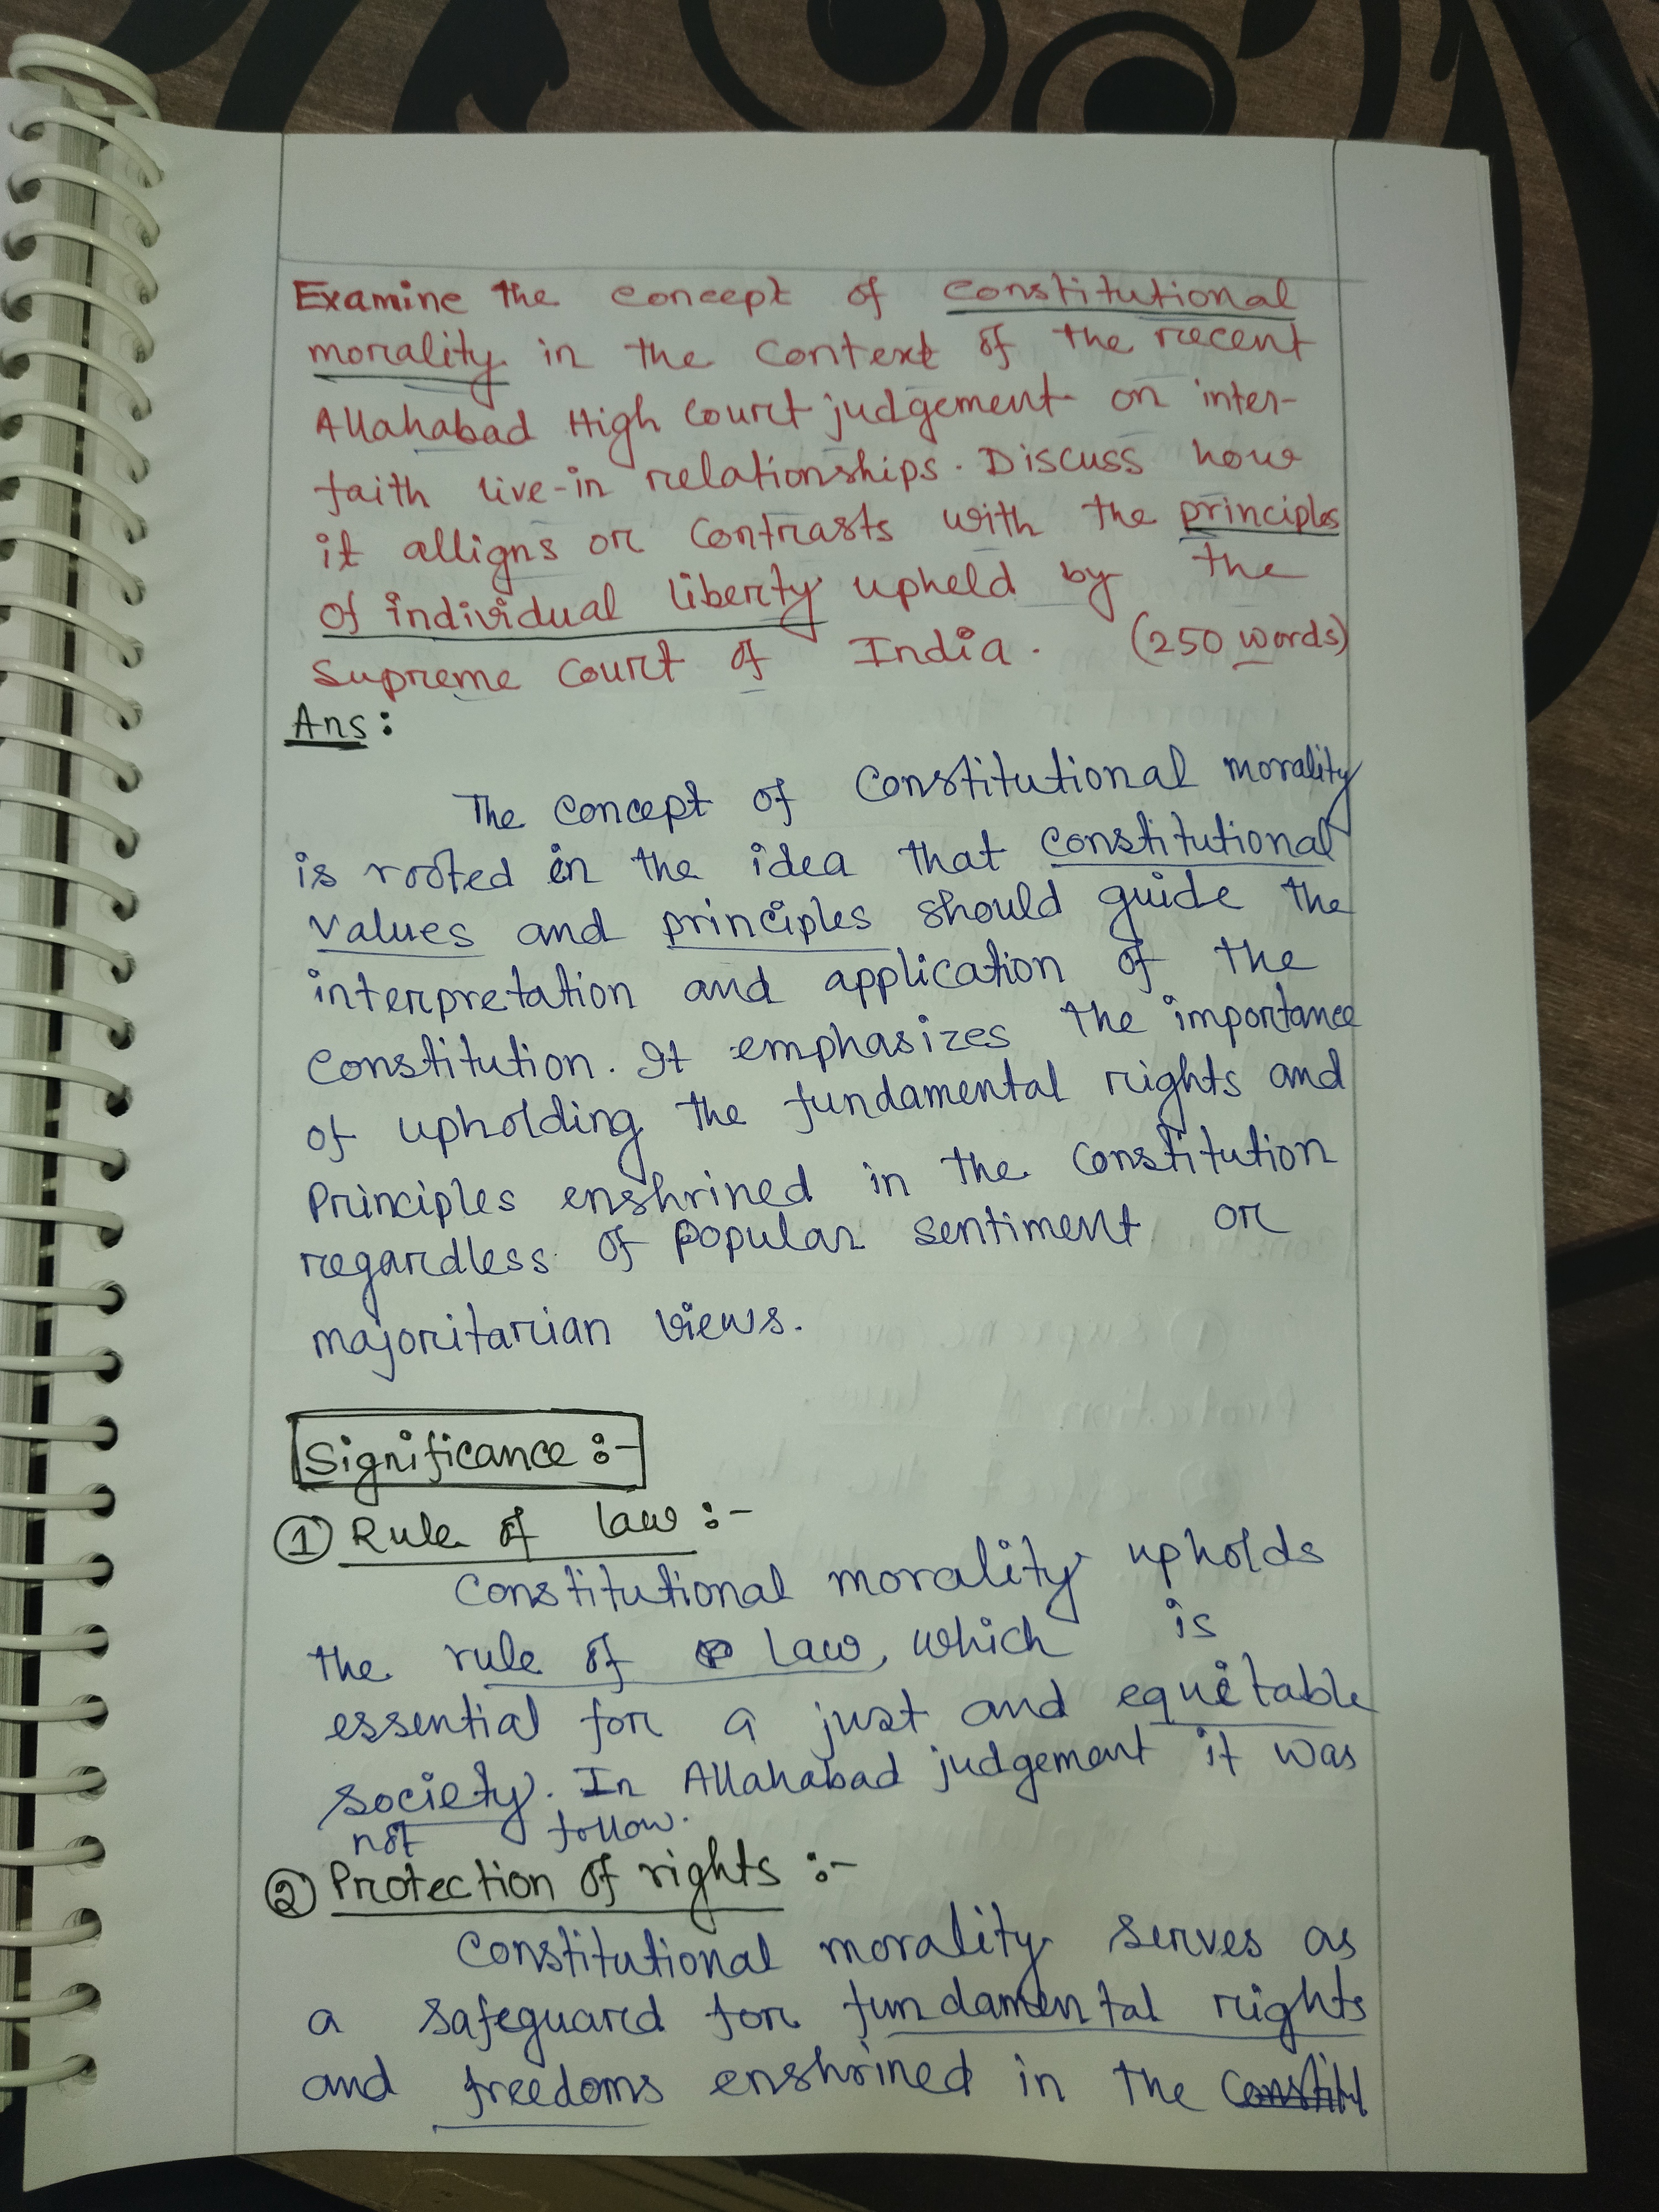 Examine the concept of constitutional
morality in the context of the recent
Allahabad High Court judgement on inter-
faith live-in relationships. Discuss how
it alligns or contrasts with the principles
of individual liberty upheld by the
Supreme Court of India. (250 words)
Ans:
The concept of constitutional morality
is rooted in the idea that constitutional
values and principles should guide the
interpretation and application of the
constitution. It emphasizes the importance
of upholding the fundamental rights and
Principles enshrined in the constitution
regardless of popular sentiment or
majoritarian views.
Significance :-
① Rule of law :-
Constitutional morality upholds
the rule of law, which is
essential for a just and equitable
society. In Allahabad judgement it was
not follow.
② Protection of rights :-
Constitutional morality serves as
a safeguard for fundamental rights
and freedoms enshrined in the